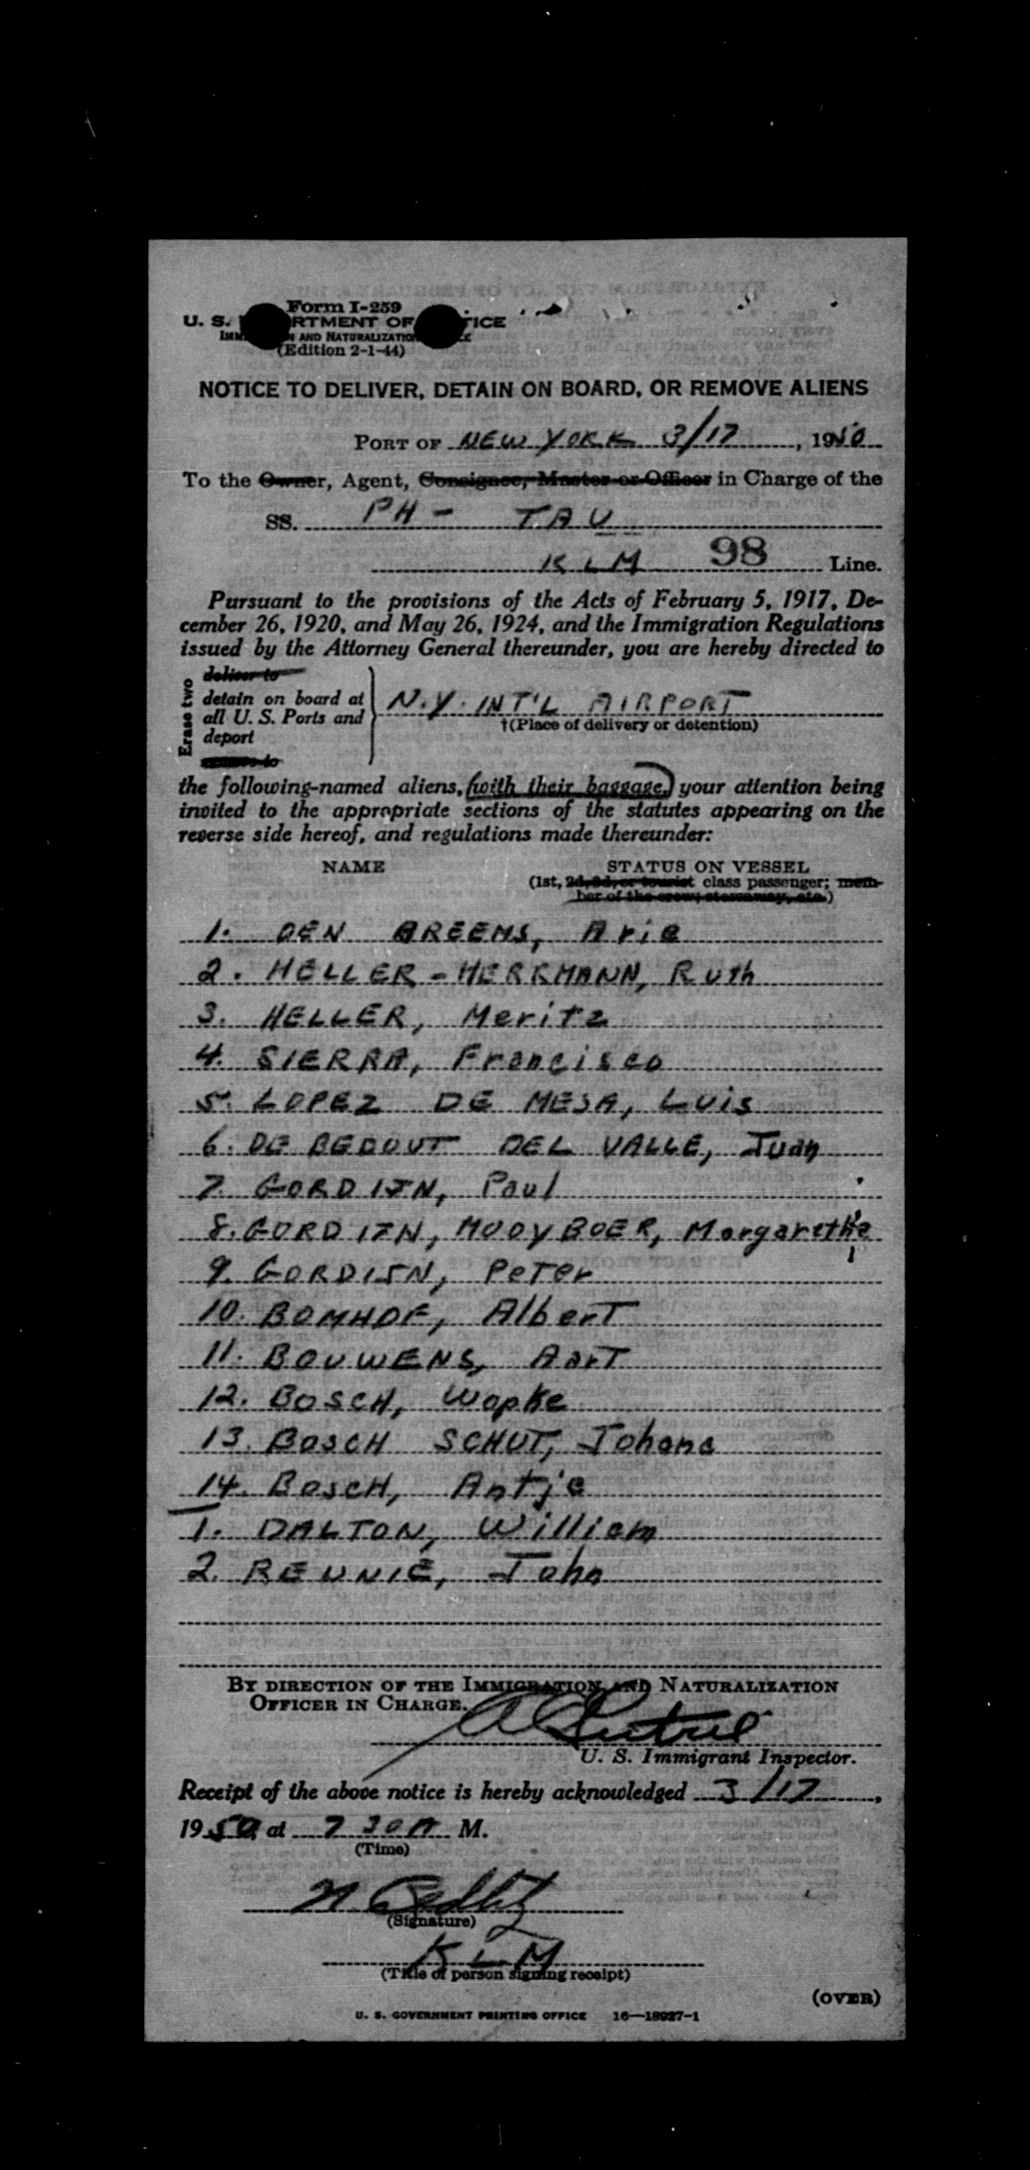 Form I-259
U. S. DEPARTMENT OF JUSTICE
IMMIGRATION AND NATURALIZATION SERVICE
(Edition 2-1-44)
NOTICE TO DELIVER, DETAIN ON BOARD, OR REMOVE ALIENS
PORT OF NEW YORK 3/17, 1950
To the Owner, Agent, Consignee, Master or Officer in Charge of the
SS. PH - TAU
KLM 98 Line.
Pursuant to the provisions of the Acts of February 5, 1917, De-
cember 26, 1920, and May 26, 1924, and the Immigration Regulations
issued by the Attorney General thereunder, you are hereby directed to
Erase two
deliver to
detain on board at
all U. S. Ports and
deport
remove to
N.Y. INT'L AIRPORT
†(Place of delivery or detention)
the following-named aliens, (with their baggage,) your attention being
invited to the appropriate sections of the statutes appearing on the
reverse side hereof, and regulations made thereunder:
NAME STATUS ON VESSEL
(1st, 2d, 3d, or tourist class passenger; mem-
ber of the crew; stowaway, etc.)
1. DEN BREEMS, Arie
2. HELLER - HERRMANN, Ruth
3. HELLER, Moritz
4. SIERRA, Francisco
5. LOPEZ DE MESA, Luis
6. DE BEDOUT DEL VALLE, Juan
7. GORDIJN, Paul
8. GORDIJN, MOOYBOER, Margarethe
9. GORDIJN, Peter
10. BOMHOF, Albert
11. BOUWENS, Aart
12. BOSCH, Wopke
13. BOSCH SCHUT, Johana
14. BOSCH, Antje
1. DALTON, William
2. REUNIE, John
BY DIRECTION OF THE IMMIGRATION AND NATURALIZATION
OFFICER IN CHARGE.
U. S. Immigrant Inspector.
Receipt of the above notice is hereby acknowledged 3/17,
1950, at 7 30 A M.
(Time)
(Signature)
KLM
(Title of person signing receipt)
(OVER)
U. S. GOVERNMENT PRINTING OFFICE 16—18927-1